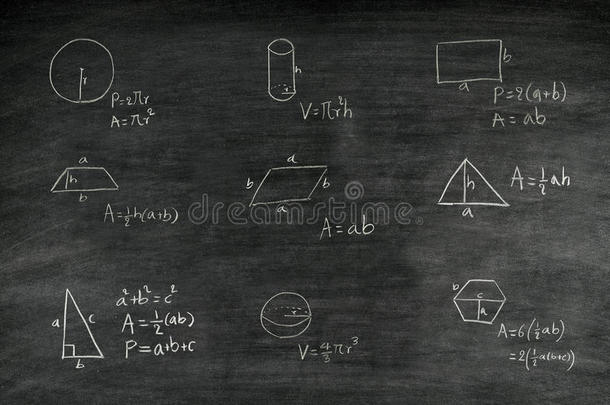 r
P=2πr
A=πr²
h
r
V=πr²h
b
a
P=2(a+b)
A=ab
a
h
b
A=½h(a+b)
a
b
b
a
A=ab
h
a
A=½ah
a
c
b
a²+b²=c²
A=½(ab)
P=a+b+c
r
V=4/3πr³
b
c
a
A=6(½ab)
=2(½a(b+c))
dreamstime.